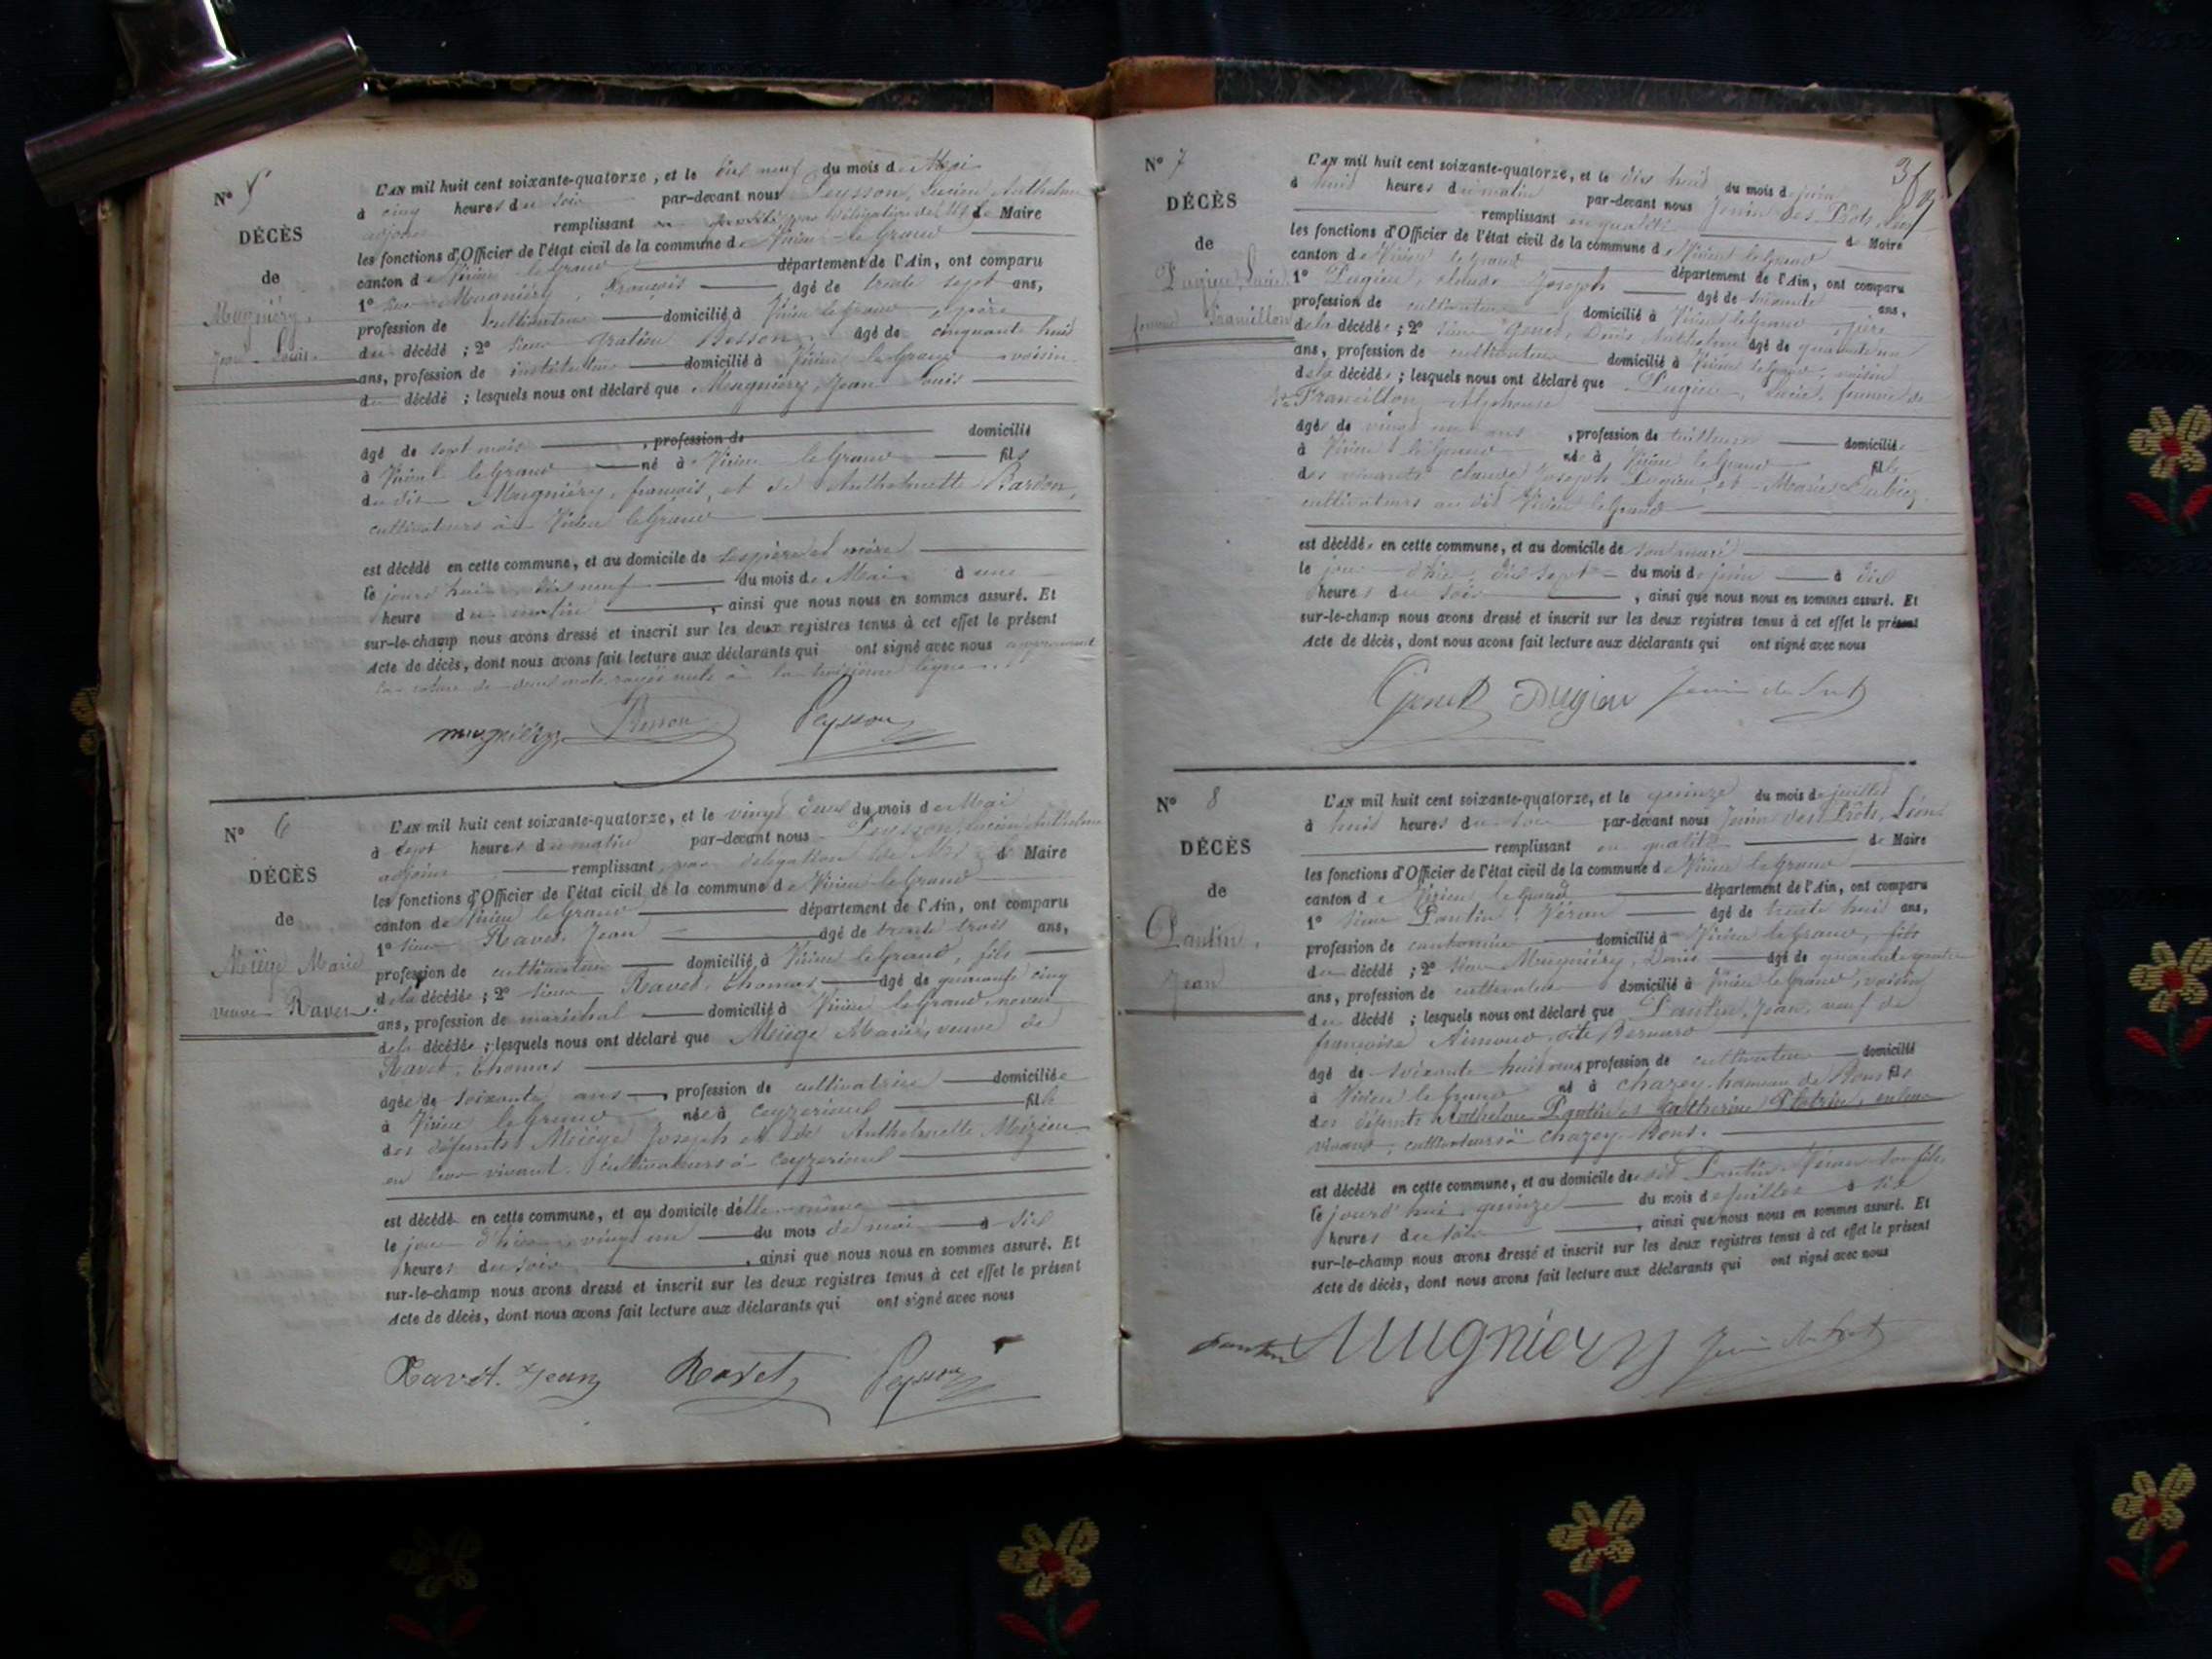 N° 5
DÉCÈS
de
Mugniéry
Jean-Louis
L'AN mil huit cent soixante-quatorze, et le dix neuf du mois de Mai
à cinq heures du soir par-devant nous Peysson, Lucien Anthelme
adjoint remplissant par délégation de Mr le Maire
les fonctions d'Officier de l'état civil de la commune de Virieu-le-Grand
canton de Virieu le Grand département de l'Ain, ont comparu
1° sieur Mugniéry, François âgé de trente sept ans,
profession de cultivateur domicilié à Virieu le Grand père
du décédé ; 2° sieur Gratien Besson âgé de cinquante huit
ans, profession de instituteur domicilié à Virieu le Grand voisin
du décédé ; lesquels nous ont déclaré que Mugniéry, Jean Louis
âgé de sept mois , profession de domicilié
à Virieu le Grand né à Virieu le Grand fils
du dit Mugniéry, françois, et de Anthelmette Bardon,
cultivateurs à Virieu le Grand
est décédé en cette commune, et au domicile de ses père et mère
le jourd'hui dix neuf du mois de Mai à une
heure du matin , ainsi que nous nous en sommes assuré. Et
sur-le-champ nous avons dressé et inscrit sur les deux registres tenus à cet effet le présent
Acte de décès, dont nous avons fait lecture aux déclarants qui ont signé avec nous approuvant
la rature de deux mots rayés nuls à la troisième ligne.
mugniéry Besson Peysson
N° 6
DÉCÈS
de
Miège Marie
veuve Ravet
L'AN mil huit cent soixante-quatorze, et le vingt deux du mois de Mai
à sept heures du matin par-devant nous Peysson, Lucien Anthelme
adjoint remplissant par délégation de Mr le Maire
les fonctions d'Officier de l'état civil de la commune de Virieu-le-Grand
canton de Virieu le Grand département de l'Ain, ont comparu
1° sieur Ravet, Jean âgé de trente trois ans,
profession de cultivateur domicilié à Virieu le Grand, fils
de la décédée ; 2° sieur Ravet, Thomas âgé de quarante cinq
ans, profession de maréchal domicilié à Virieu le Grand, neveu
de la décédée ; lesquels nous ont déclaré que Miège Marie, veuve de
Ravet, Thomas
âgée de soixante ans , profession de cultivatrice domiciliée
à Virieu le Grand née à Ceyzerieu fille
des défunts Miège Joseph et de Anthelmette Mezieu
en leur vivant, cultivateurs à Ceyzerieu
est décédé en cette commune, et au domicile d'elle-même
le jour d'hier vingt un du mois de mai à dix
heures du soir , ainsi que nous nous en sommes assuré. Et
sur-le-champ nous avons dressé et inscrit sur les deux registres tenus à cet effet le présent
Acte de décès, dont nous avons fait lecture aux déclarants qui ont signé avec nous
Ravet. Jean Ravet Peysson
N° 7
DÉCÈS
de
Pugieu, Lucie
femme Francillon
L'AN mil huit cent soixante-quatorze, et le dix huit du mois de juin
à huit heures du matin par-devant nous Jenin des Prôts, Léon
remplissant en qualité de Maire
les fonctions d'Officier de l'état civil de la commune de Virieu le Grand
canton de Virieu le Grand département de l'Ain, ont comparu
1° Pugieu, claude Joseph âgé de soixante ans,
profession de cultivateur domicilié à Virieu le Grand, père
de la décédée ; 2° sieur Genet, Denis Anthelme âgé de quarante un
ans, profession de cultivateur domicilié à Virieu le Grand, voisin
de la décédée ; lesquels nous ont déclaré que Pugieu, Lucie, femme de
Francillon Alphonse
âgée de vingt ans , profession de tailleuse domiciliée
à Virieu le Grand née à Virieu le Grand fille
des vivants claude Joseph Pugieu, et Marie
cultivateurs au dit Virieu le Grand
est décédée en cette commune, et au domicile de son mari
le jour d'hier, dix sept du mois de juin à dix
heures du soir , ainsi que nous nous en sommes assuré. Et
sur-le-champ nous avons dressé et inscrit sur les deux registres tenus à cet effet le présent
Acte de décès, dont nous avons fait lecture aux déclarants qui ont signé avec nous
Genet Pugieu Jenin des Prots
N° 8
DÉCÈS
de
Pantin,
Jean
L'AN mil huit cent soixante-quatorze, et le quinze du mois de juillet
à huit heures du soir par-devant nous Jenin des Prôts, Léon
remplissant en qualité de Maire
les fonctions d'Officier de l'état civil de la commune de Virieu le Grand
canton de Virieu le Grand département de l'Ain, ont comparu
1° sieur Pantin, Véran âgé de trente huit ans,
profession de cantonnier domicilié à Virieu le Grand, fils
du décédé ; 2° sieur Mugniéry, Denis âgé de quarante quatre
ans, profession de cultivateur domicilié à Virieu le Grand, voisin
du décédé ; lesquels nous ont déclaré que Pantin, Jean, veuf de
françoise Aimoud dite Bernard
âgé de soixante huit ans, profession de cultivateur domicilié
à Virieu le Grand né à chazey, hameau de Bons fils
des défunts Anthelme Pantin et Catherine en leur
vivant, cultivateurs à Chazey-Bons.
est décédé en cette commune, et au domicile du dit Pantin Véran son fils
le jourd'hui, quinze du mois de juillet à six
heures du soir , ainsi que nous nous en sommes assuré. Et
sur-le-champ nous avons dressé et inscrit sur les deux registres tenus à cet effet le présent
Acte de décès, dont nous avons fait lecture aux déclarants qui ont signé avec nous
Pantin Mugniery Jenin des Prots